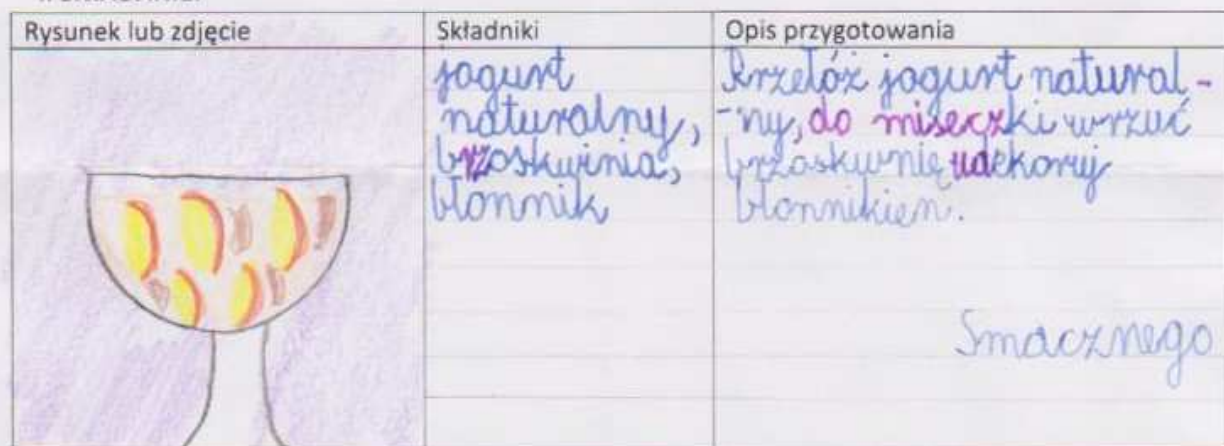 Rysunek lub zdjęcie
Składniki
Opis przygotowania
jogurt
naturalny,
brzoskwinia,
błonnik
Przełóż jogurt natural-
-ny, do miseczki wrzuć
brzoskwnię udekoruj
błonnikien.
Smacznego